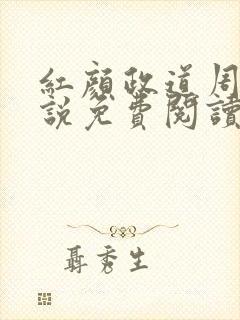 紅顏政道周
說免費閱讀
聶秀生